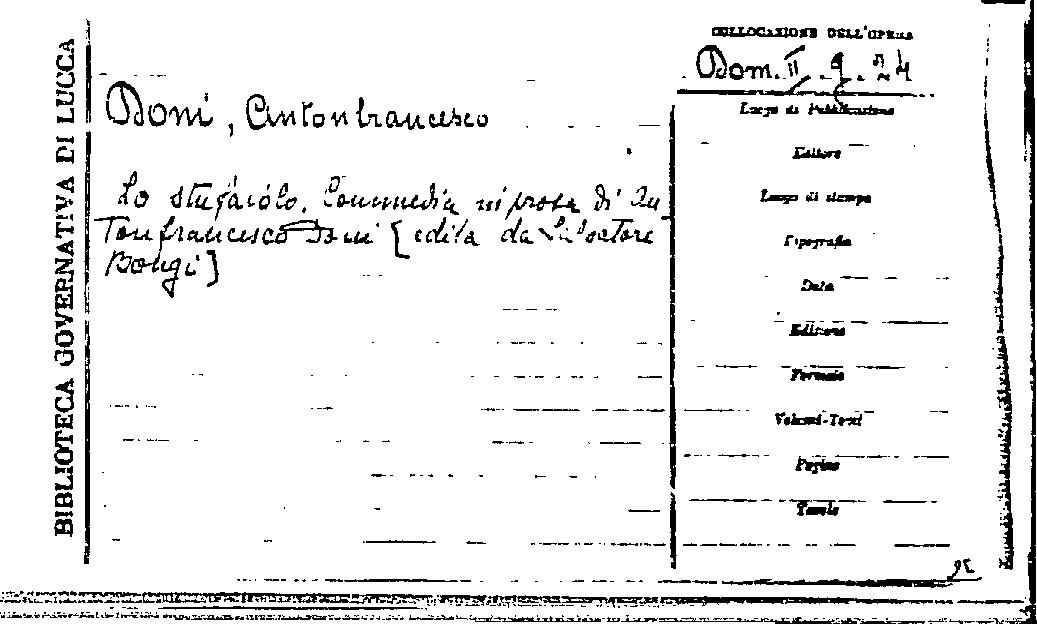 BIBLIOTECA GOVERNATIVA DI LUCCA
COLLOCAZIONE DELL'OPERA
Dom. II. 9. 24
Doni, Antonfrancesco
Lo stufaiolo. Commedia in prosa di An
Tonfrancesco Doni [edita da Salvatore
Bongi]
Luogo di Pubblicazione
Editore
Luogo di stampa
Tipografia
Data
Edizione
Formato
Volumi-Tomi
Pagine
Tavole